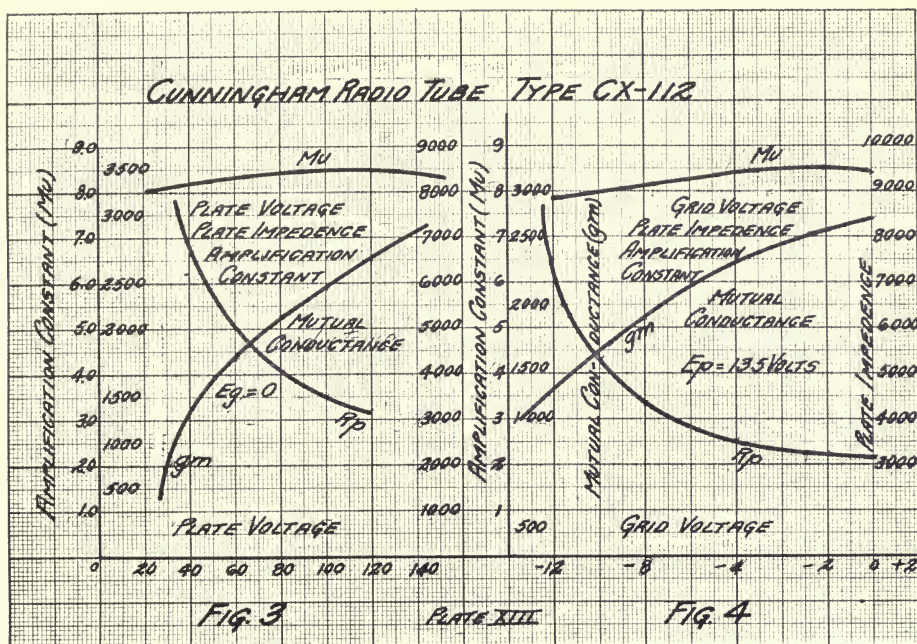 CUNNINGHAM RADIO TUBE TYPE CX-112
AMPLIFICATION CONSTANT (MU)
9.0
8.0
7.0
6.0
5.0
4.0
3.0
2.0
1.0
3500
3000
2500
2000
1500
1000
500
MU
PLATE VOLTAGE
PLATE IMPEDENCE
AMPLIFICATION
CONSTANT
MUTUAL
CONDUCTANCE
Eg=0
gm
Rp
PLATE VOLTAGE
0 20 40 60 80 100 120 140
FIG. 3
9000
8000
7000
6000
5000
4000
3000
2000
1000
AMPLIFICATION CONSTANT (MU)
9
8
7
6
5
4
3
2
1
3000
2500
2000
1500
1000
500
MUTUAL CON-DUCTANCE (gm)
MU
GRID VOLTAGE
PLATE IMPEDENCE
AMPLIFICATION
CONSTANT
MUTUAL
CONDUCTANCE
gm
Ep=135 VOLTS
Rp
GRID VOLTAGE
10000
9000
8000
7000
6000
5000
4000
3000
PLATE IMPEDENCE
-12 -8 -4 -2 0 +2
PLATE XIII
FIG. 4